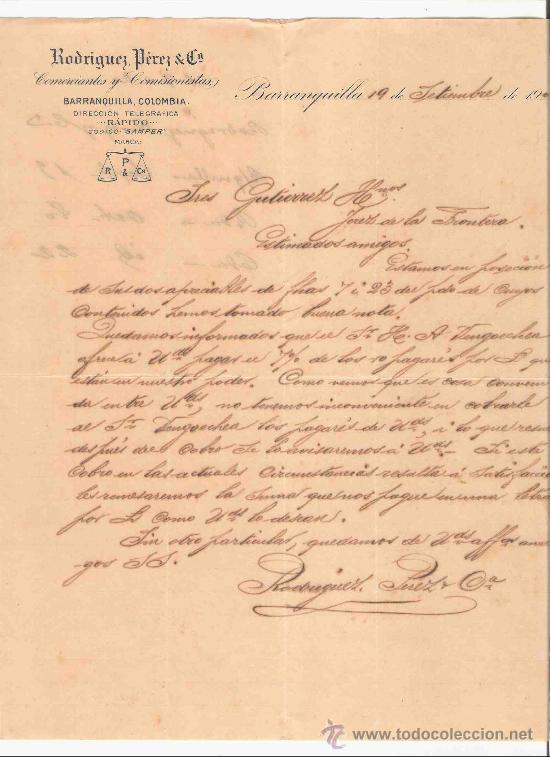 Rodriguez, Pérez & Cª
Comerciantes y Comisionistas,
BARRANQUILLA, COLOMBIA.
DIRECCIÓN TELEGRÁFICA
"RÁPIDO"
CÓDIGO "SAMPER"
MARCA:
P
R & Cª
Barranquilla 19 de Setiembre de 190
Sres Gutierrez Hnos
Jerez de la Frontera.
Estimados amigos.
Estamos en poseción
de sus dos apreciables de fhas 7 i 23 del pdo de cuyos
contenidos hemos tomado buena nota.
Quedamos informados que el Sr H. A. Vengoechea
ofrece á Uds pagar el 7% de los 10 pagarés por £ que
están en nuestro poder. Como vemos que es cosa conveni
da entre Uds, no tenemos inconveniente en cobrarle
al Sr Vengoechea los pagarés de Uds, i lo que resulte
después del cobro se lo avisaremos á Uds - Si este
cobro en las actuales circunstancias resulta á satisfacción
les remesaremos la suma que nos pague en una letra
por £ como Uds lo desean.
Sin otro particular, quedamos de Uds affmos ami-
gos SS.
Rodríguez. Perez & Cia
www.todocoleccion.net